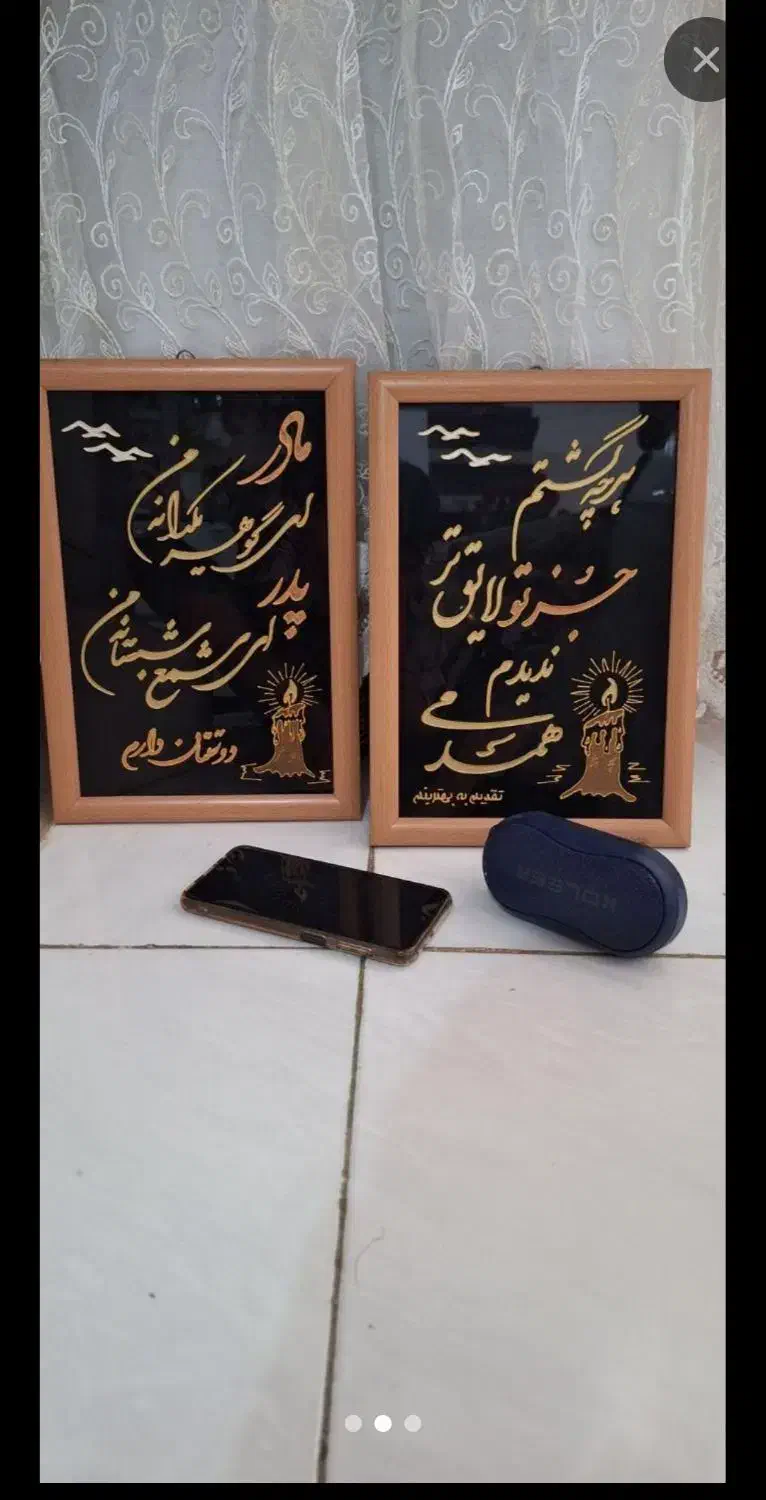 مادر
ای گوهر یکدانه من
پدر
ای شمع شبستانه من
دوستتان دارم
هرچه گشتم
جز تو لایق تر
ندیدم
همدمی
تقدیم به بهترینم
KOLEER